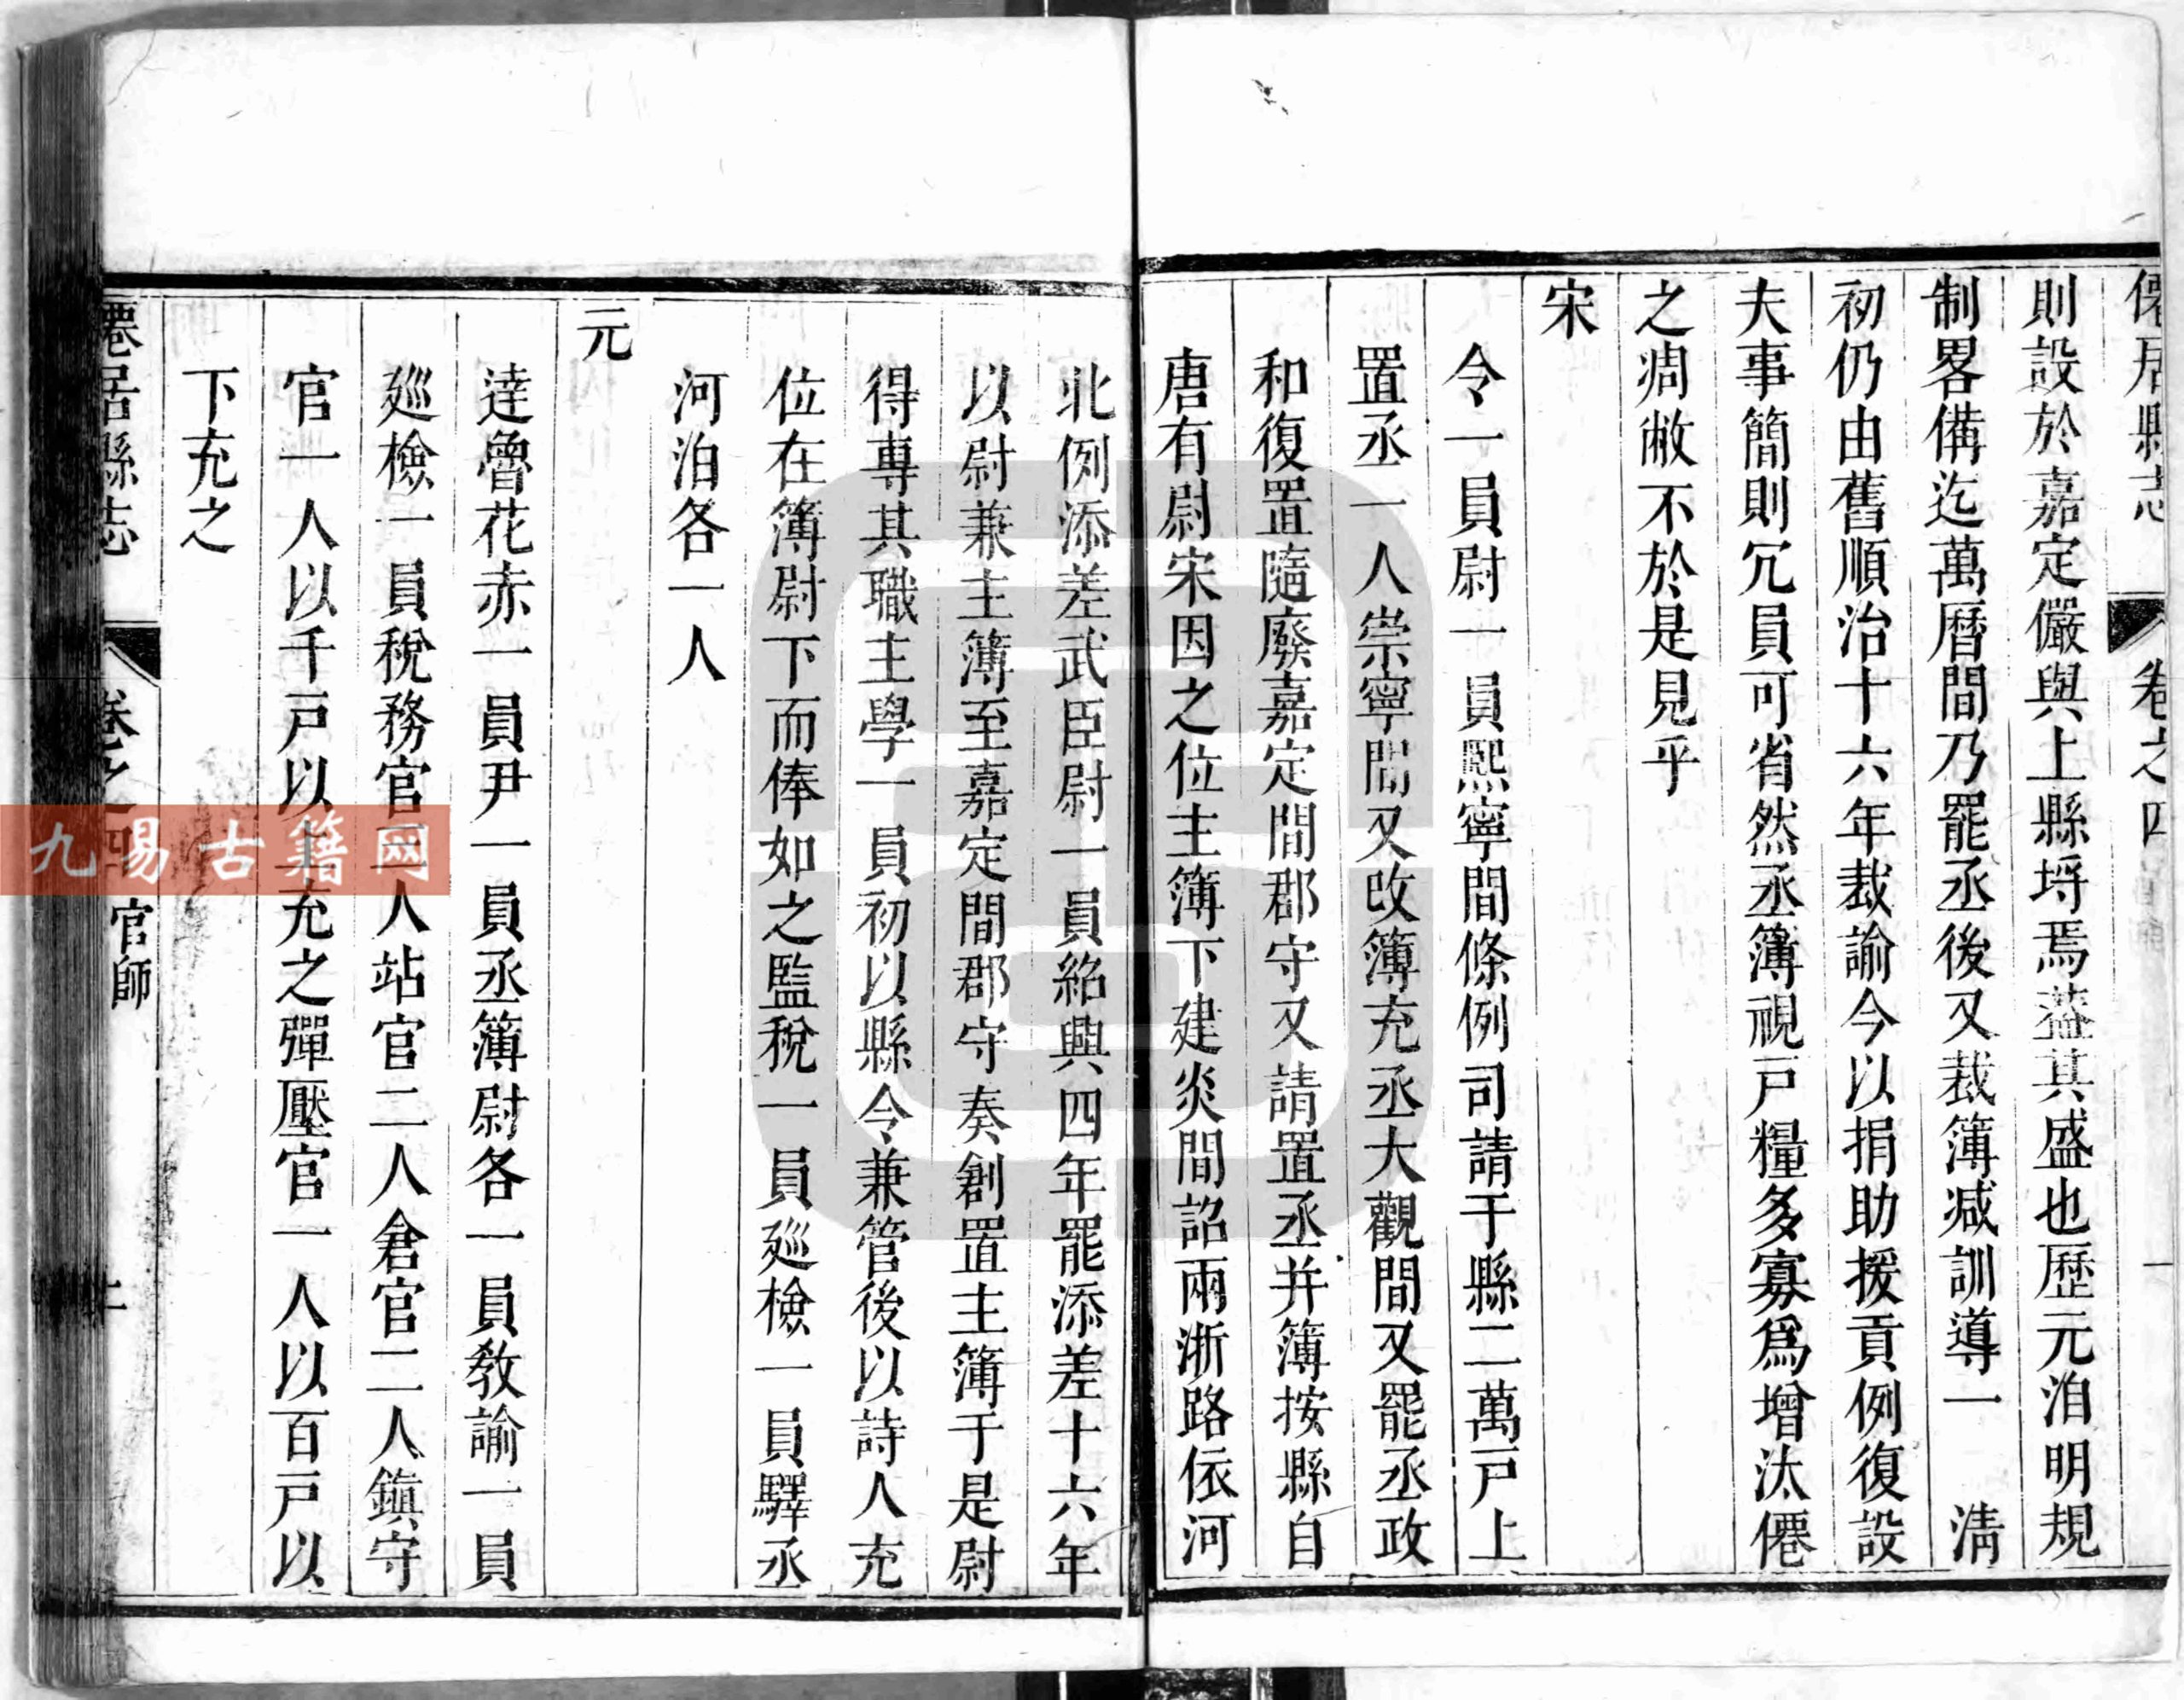 僊居縣志
卷之四
一
則設於嘉定儼與上縣埒焉葢其盛也歷元洎明規
制畧備迄萬曆間乃罷丞後又裁簿減訓導一 淸
初仍由舊順治十六年裁諭今以捐助援貢例復設
夫事簡則冗員可省然丞簿視戸糧多寡爲增汰僊
之凋敝不於是見乎
宋
令一員尉一員熙寧間條例司請于縣二萬戸上
置丞一人崇寧間又改簿充丞大觀間又罷丞政
和復置隨廢嘉定間郡守又請置丞并簿按縣自
唐有尉宋因之位主簿下建炎間詔兩浙路依河
北例添差武臣尉一員紹興四年罷添差十六年
以尉兼主簿至嘉定間郡守奏創置主簿于是尉
得專其職主學一員初以縣令兼管後以詩人充
位在簿尉下而俸如之監稅一員廵檢一員驛丞
河泊各一人
元
逹魯花赤一員尹一員丞簿尉各一員敎諭一員
廵檢一員稅務官二人站官二人倉官二人鎭守
官一人以千戸以上充之彈壓官一人以百戸以
下充之
僊居縣志
卷之四
官師
九易古籍网